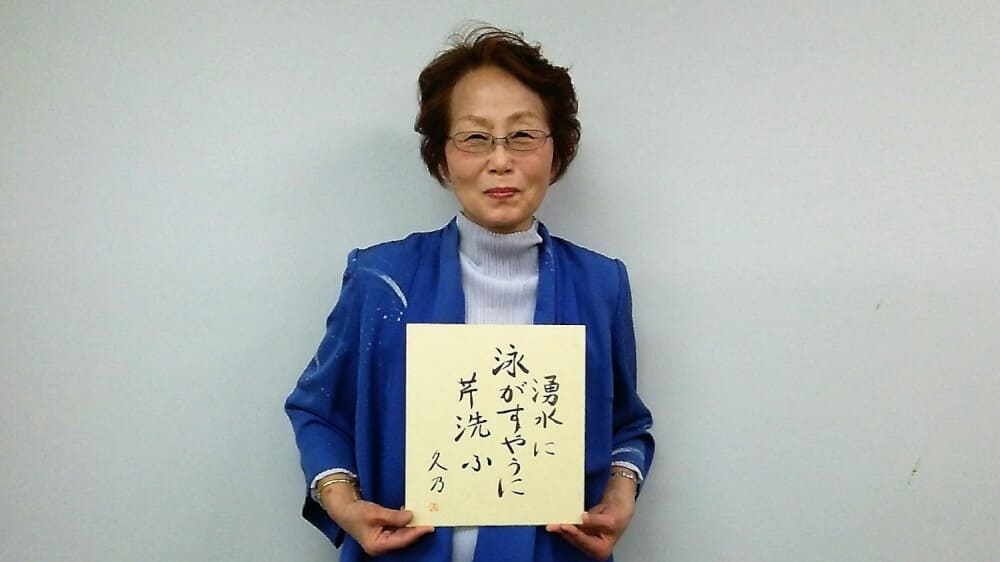 湧水に
泳がすやうに
芹洗ふ
久乃